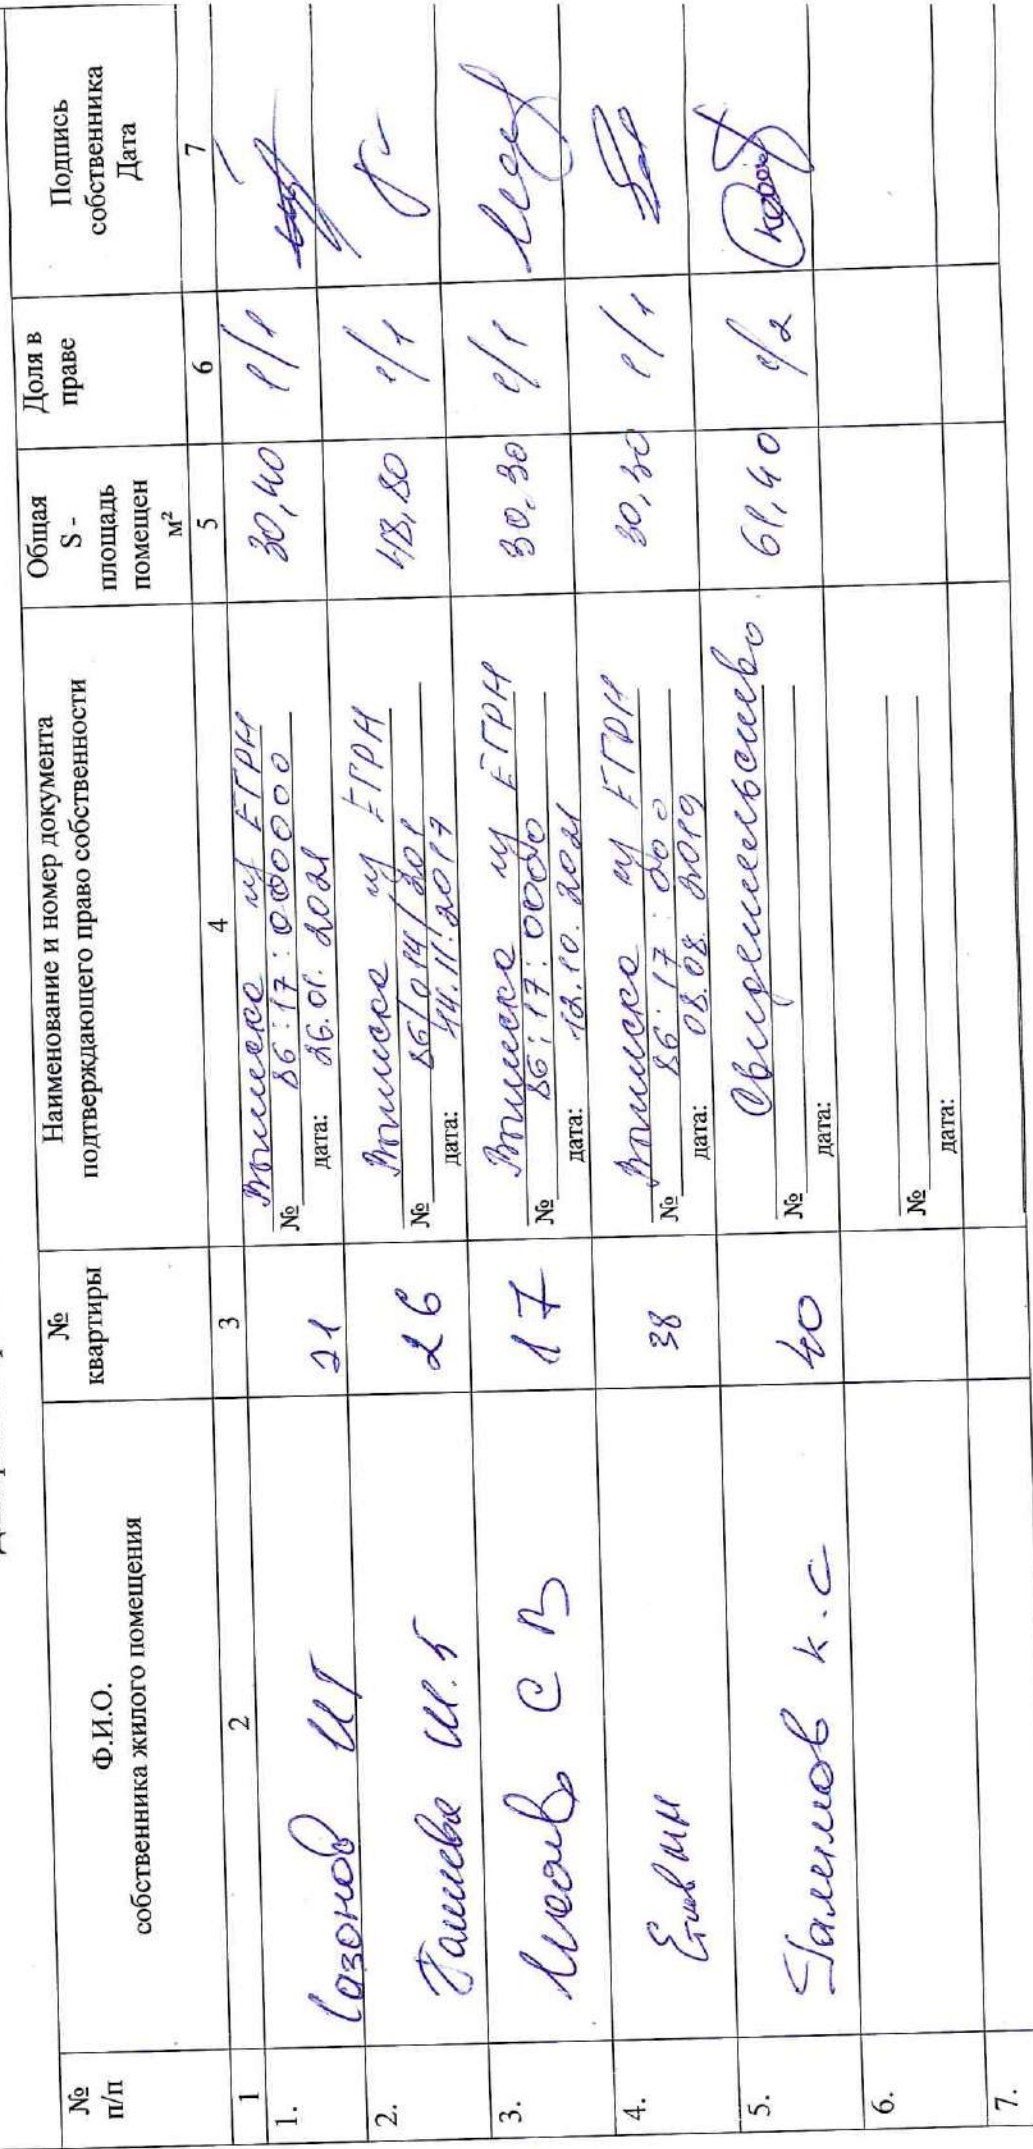 № п/п
Ф.И.О. собственника жилого помещения
№ квартиры
Наименование и номер документа подтверждающего право собственности
Общая S - площадь помещен м²
Доля в праве
Подпись собственника Дата
1 2 3 4 5 6 7
1. Сазонов ИГ 21
Выписка из ЕГРН
№ 86:17:000000
дата: 26.01.2021
30,40 1/1
2. 26
Выписка из ЕГРН
№ 86/014/201
дата: 14.11.2017
48,80 1/1
3. С В 17
Выписка из ЕГРН
№ 86:17:0000
дата: 12.10.2021
30.30 1/1
4. 38
Выписка из ЕГРН
№ 86:17:000
дата: 08.08.2019
30,30 1/1
5. Галимов К.С 40
Свидетельство
№
дата:
61,40 1/2
6.
№
дата:
7.